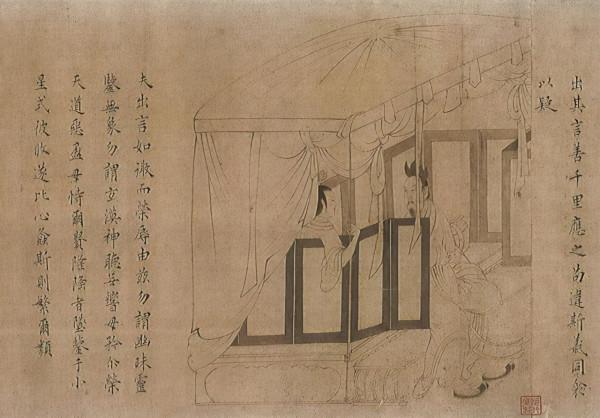 出其言善千里應之苟違斯義同衾
以疑
夫出言如微而榮辱由茲勿謂幽昧靈
鑒無象勿謂玄漠神聽無響毋矜尒榮
天道惡盈毋恃爾貴隆隆者墜鑒于小
星戒彼攸遂比心螽斯則繁爾類